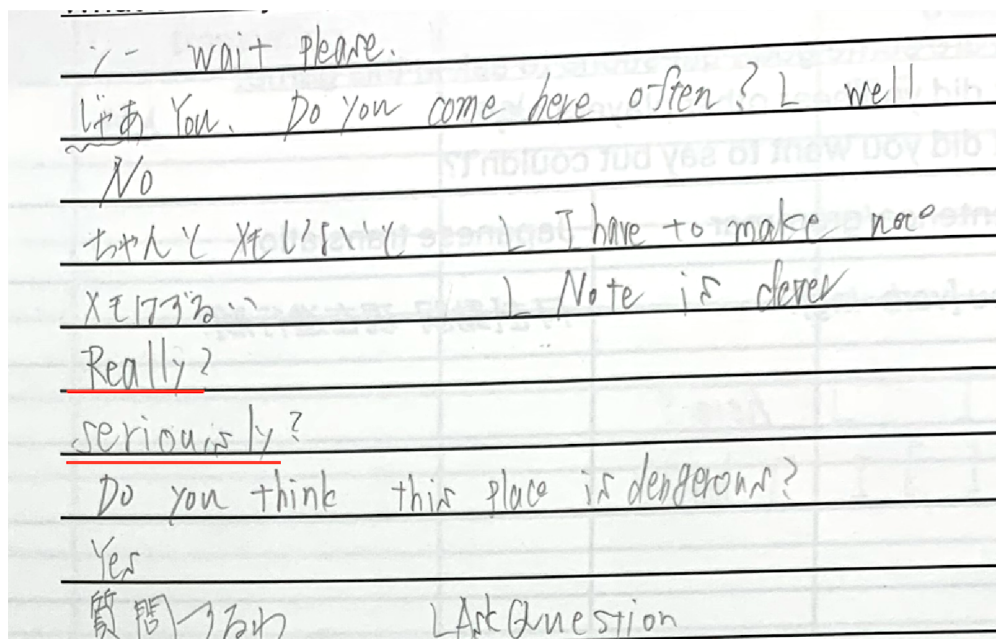 wait please.
じゃあ You. Do you come here often? L well
No
ちゃんとメモしないと L I have to make note
メモはずるい L Note is clever
Really?
seriouisly?
Do you think this place is dengerous?
Yes
質問するわ L Ask Question